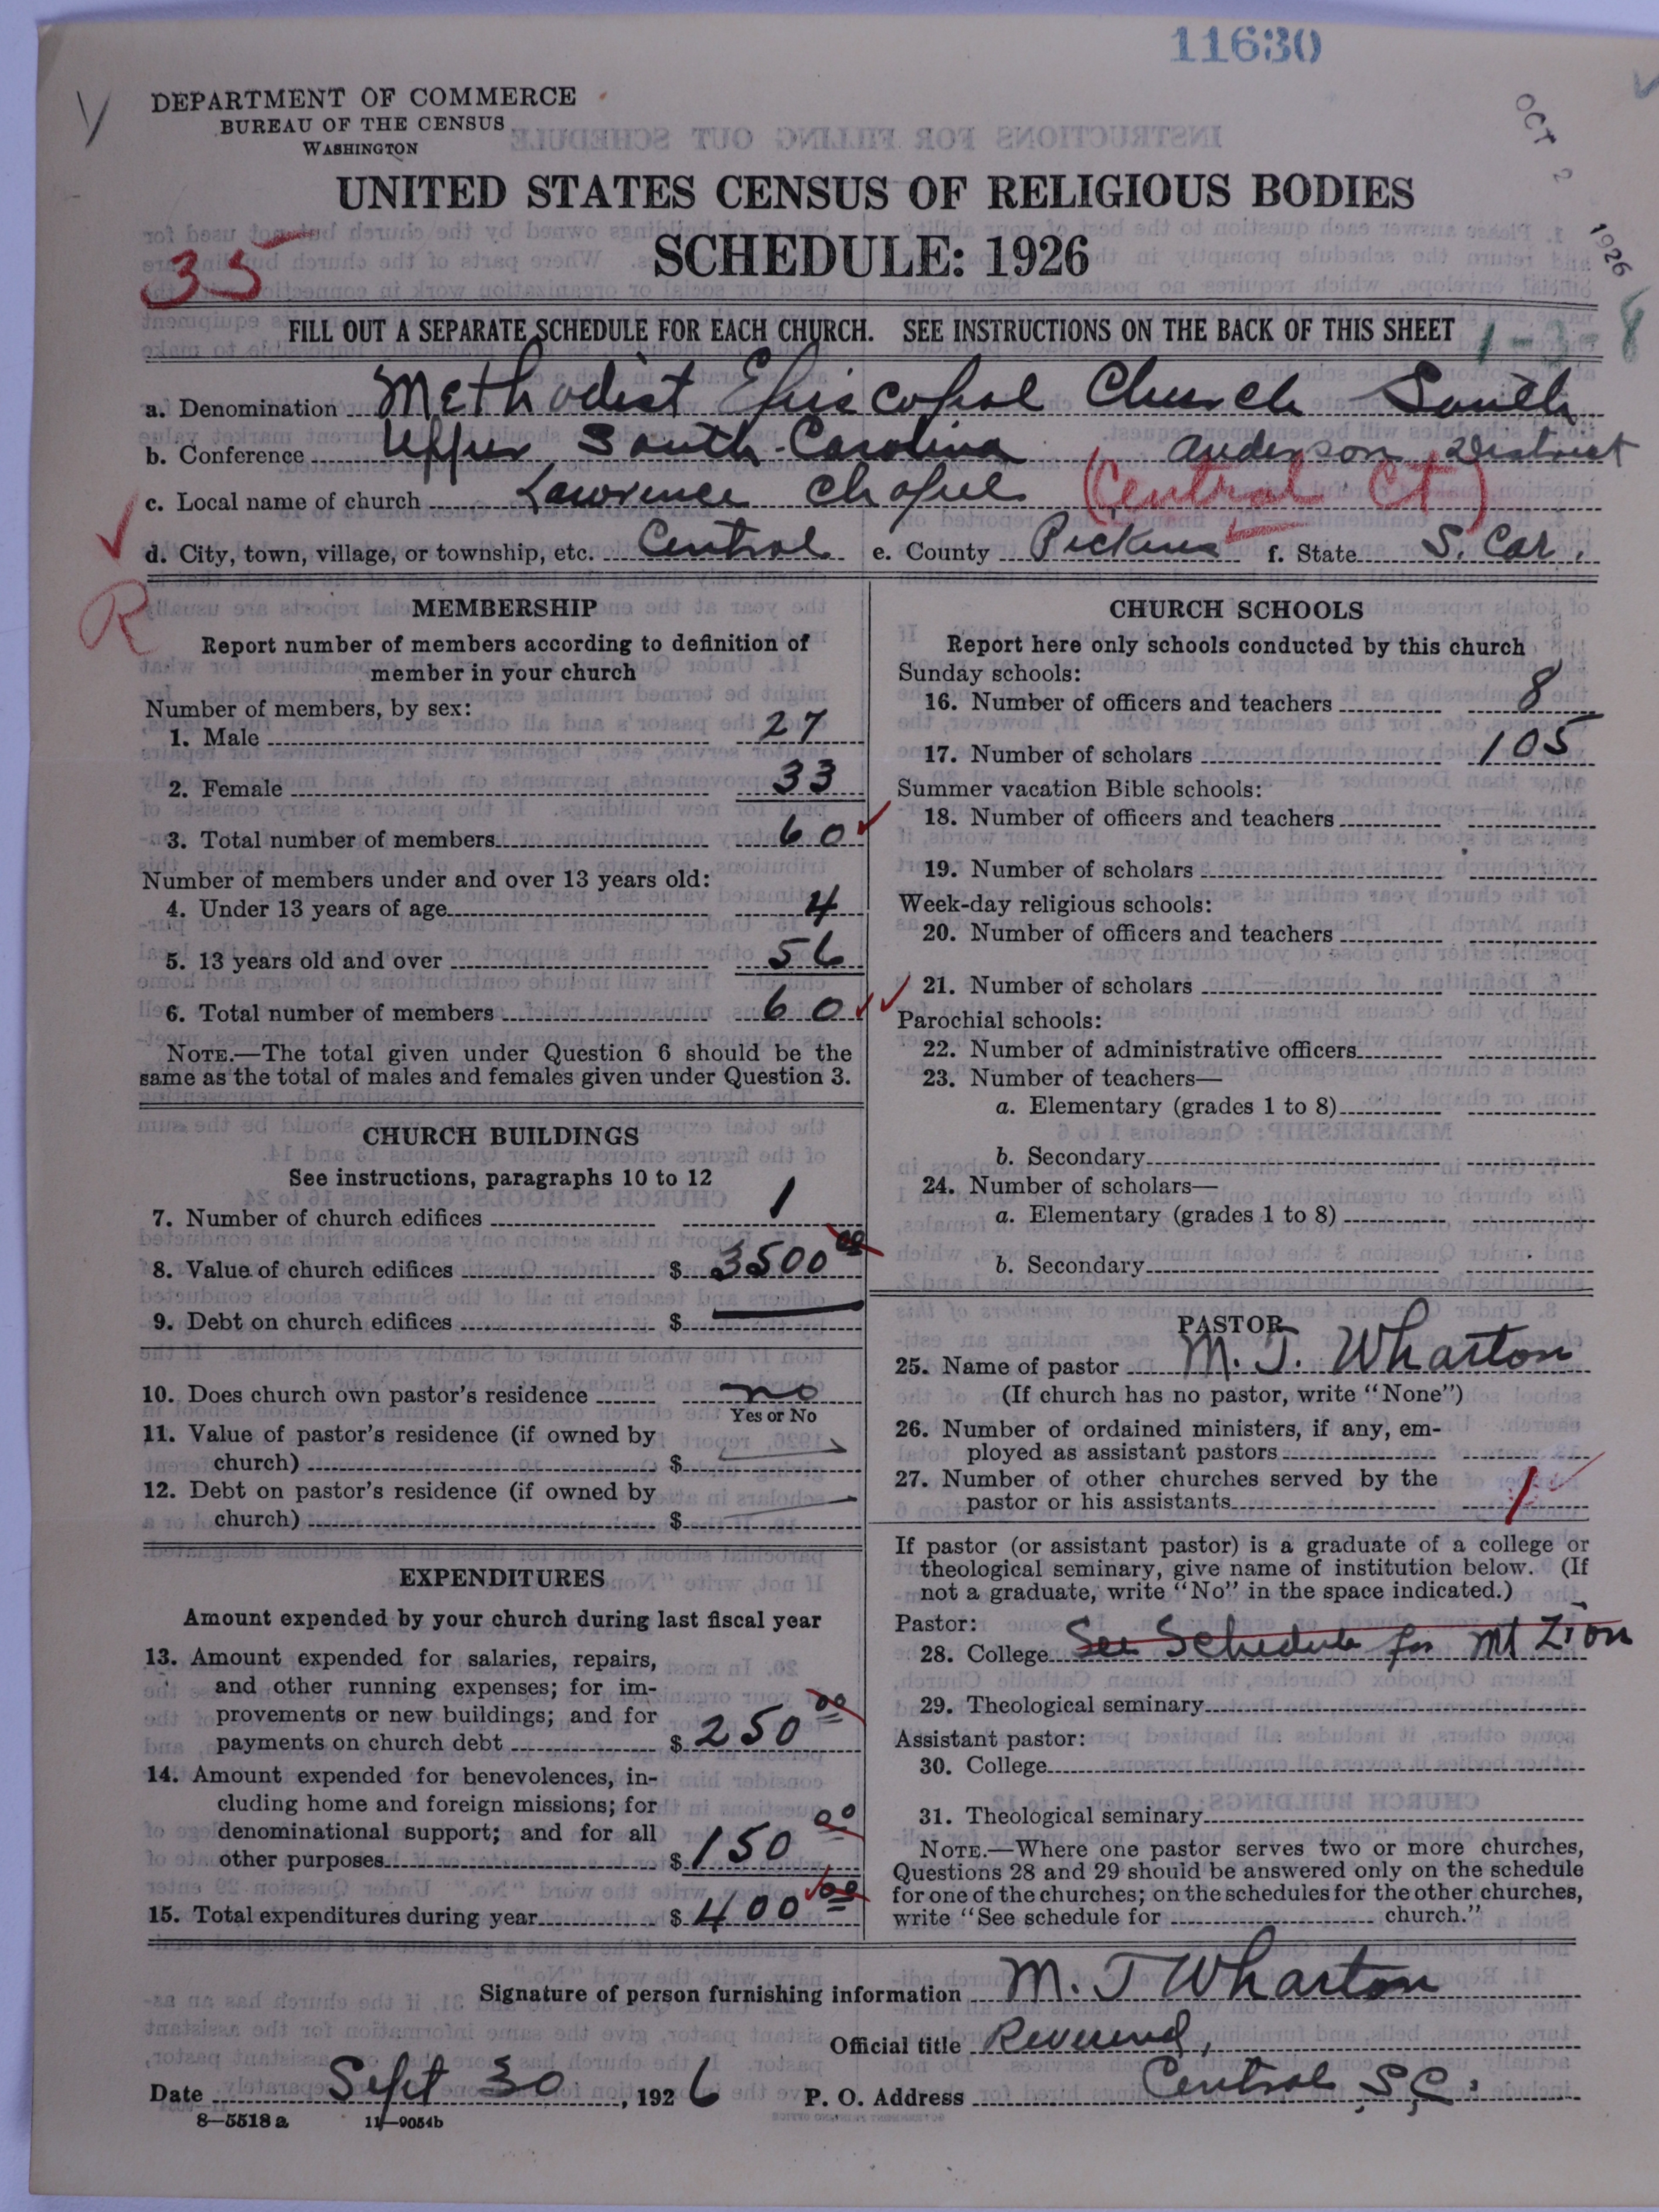 11630
DEPARTMENT OF COMMERCE
BUREAU OF THE CENSUS
WASHINGTON
OCT 2 1926
UNITED STATES CENSUS OF RELIGIOUS BODIES
SCHEDULE: 1926
35
FILL OUT A SEPARATE SCHEDULE FOR EACH CHURCH. SEE INSTRUCTIONS ON THE BACK OF THIS SHEET
1-3-8
a. Denomination Methodist Episcopal Church South
b. Conference Upper South Carolina Anderson District
c. Local name of church Lawrence Chapel (Central Ct)
d. City, town, village, or township, etc. Central e. County Pickens f. State S. Car.
R
MEMBERSHIP
Report number of members according to definition of
member in your church
Number of members, by sex:
1. Male 27
2. Female 33
3. Total number of members 60
Number of members under and over 13 years old:
4. Under 13 years of age 4
5. 13 years old and over 56
6. Total number of members 60
NOTE.—The total given under Question 6 should be the
same as the total of males and females given under Question 3.
CHURCH BUILDINGS
See instructions, paragraphs 10 to 12
7. Number of church edifices 1
8. Value of church edifices $ 3500 00
9. Debt on church edifices $
10. Does church own pastor's residence no
Yes or No
11. Value of pastor's residence (if owned by
church) $
12. Debt on pastor's residence (if owned by
church) $
EXPENDITURES
Amount expended by your church during last fiscal year
13. Amount expended for salaries, repairs,
and other running expenses; for im-
provements or new buildings; and for
payments on church debt $ 250 00
14. Amount expended for benevolences, in-
cluding home and foreign missions; for
denominational support; and for all
other purposes $ 150 00
15. Total expenditures during year $ 400 00
CHURCH SCHOOLS
Report here only schools conducted by this church
Sunday schools:
16. Number of officers and teachers 8
17. Number of scholars 105
Summer vacation Bible schools:
18. Number of officers and teachers
19. Number of scholars
Week-day religious schools:
20. Number of officers and teachers
21. Number of scholars
Parochial schools:
22. Number of administrative officers
23. Number of teachers—
a. Elementary (grades 1 to 8)
b. Secondary
24. Number of scholars—
a. Elementary (grades 1 to 8)
b. Secondary
PASTOR
25. Name of pastor M. T. Wharton
(If church has no pastor, write "None")
26. Number of ordained ministers, if any, em-
ployed as assistant pastors
27. Number of other churches served by the
pastor or his assistants 1
If pastor (or assistant pastor) is a graduate of a college or
theological seminary, give name of institution below. (If
not a graduate, write "No" in the space indicated.)
Pastor:
28. College See Schedule for Mt Zion
29. Theological seminary
Assistant pastor:
30. College
31. Theological seminary
NOTE.—Where one pastor serves two or more churches,
Questions 28 and 29 should be answered only on the schedule
for one of the churches; on the schedules for the other churches,
write "See schedule for church."
Signature of person furnishing information M. T Wharton
Official title Reverend,
Date Sept 30, 1926 P. O. Address Central S.C.
8—5518 a 11—9054b